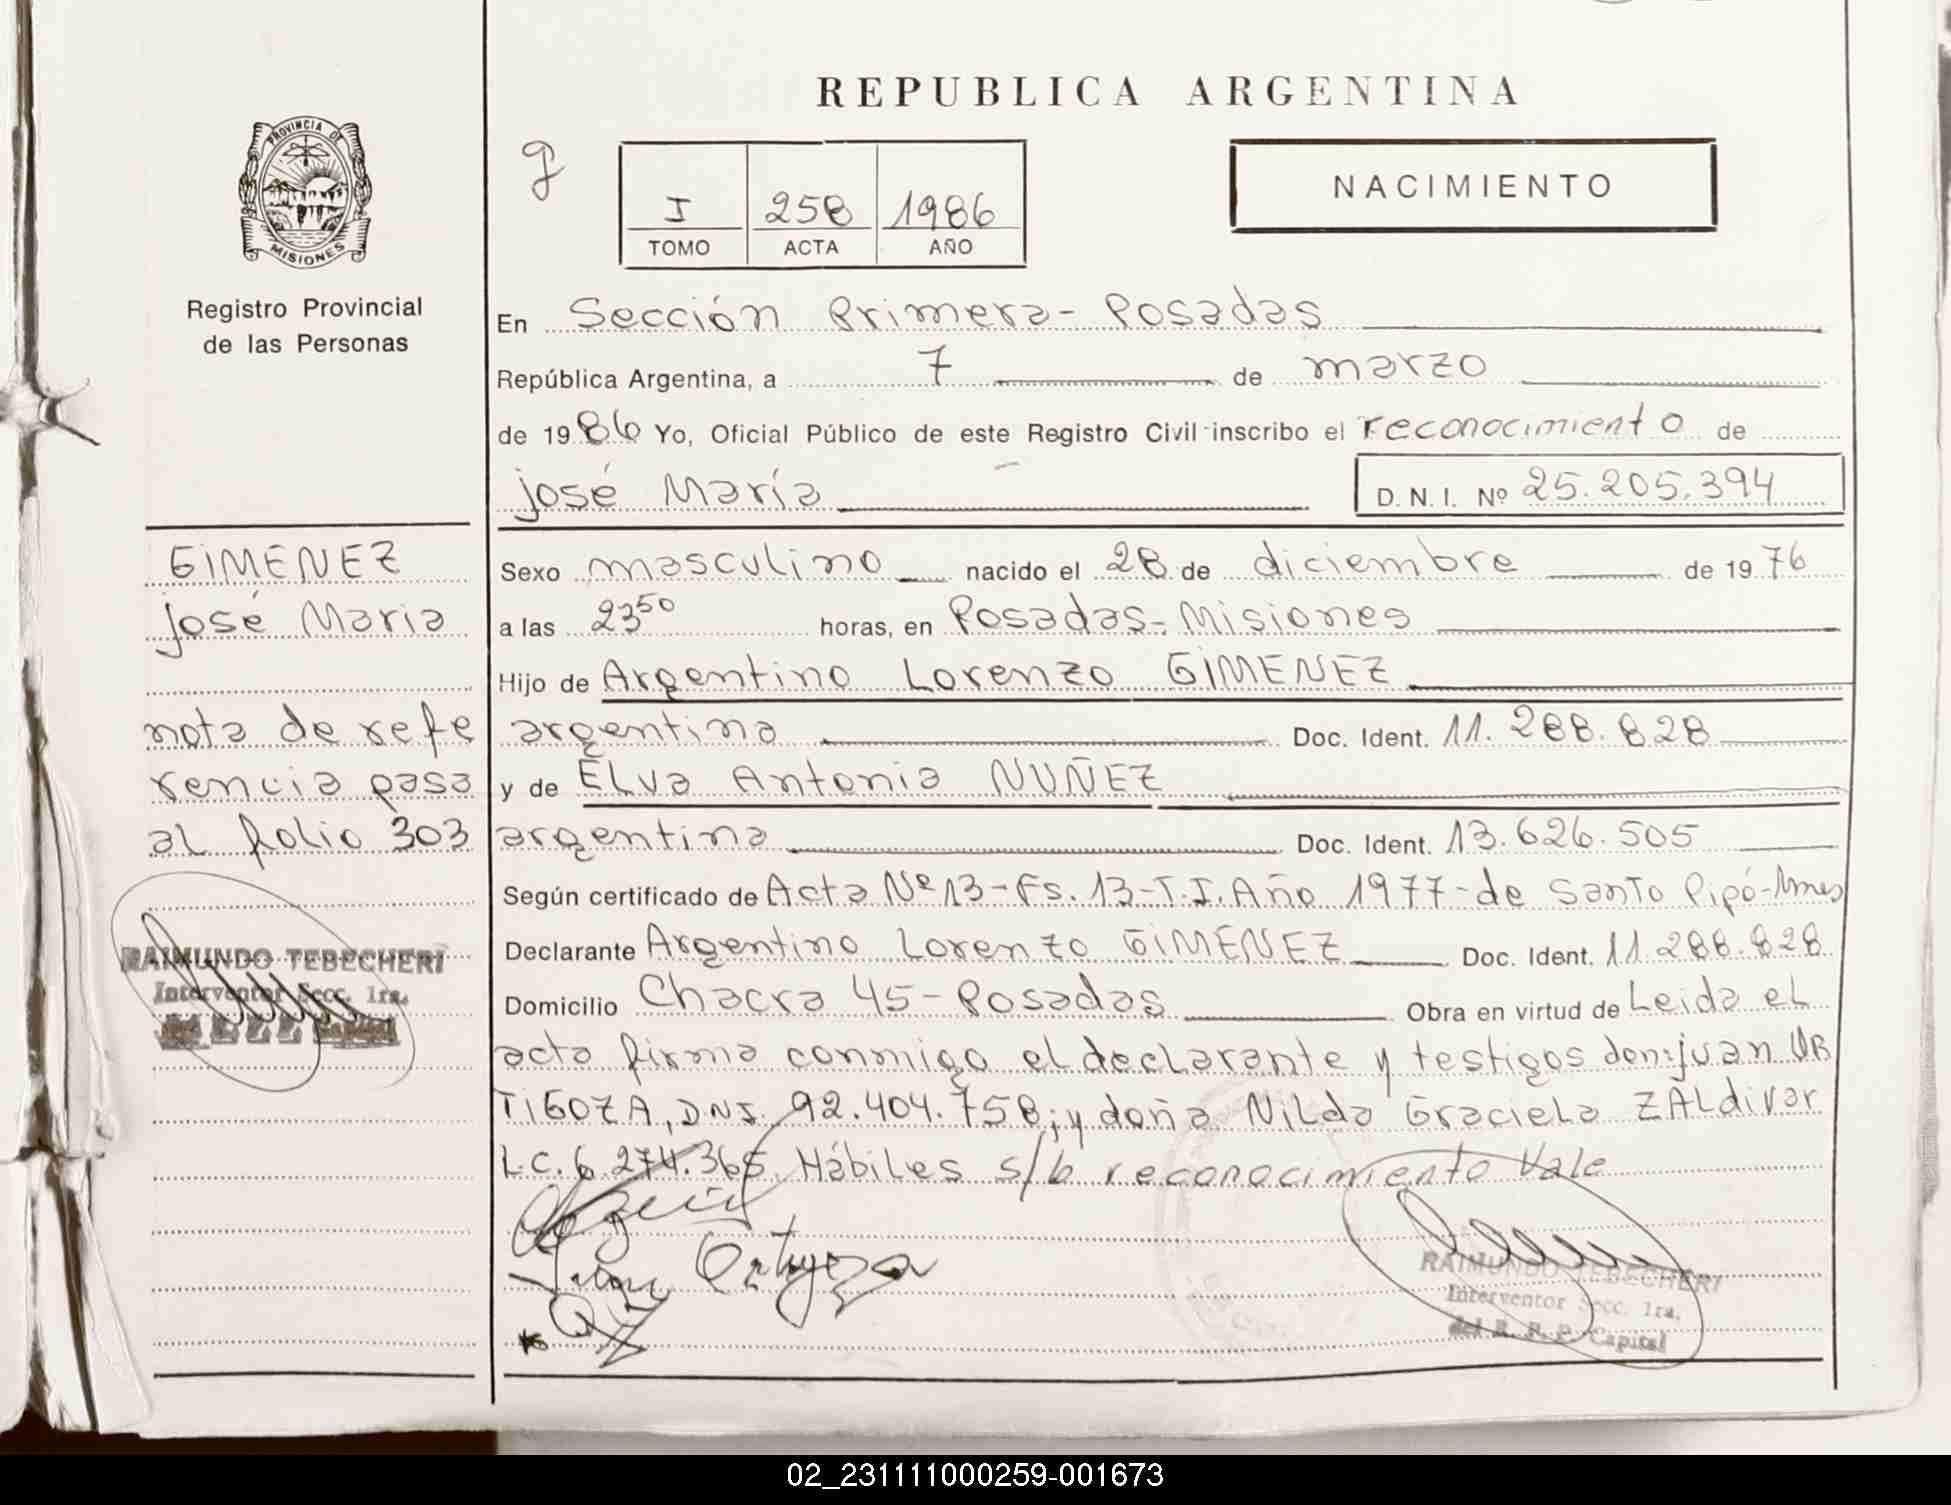 REPUBLICA ARGENTINA
PROVINCIA DE
MISIONES
Registro Provincial
de las Personas
I 258 1986
TOMO ACTA AÑO
NACIMIENTO
En Sección Primera- Posadas
República Argentina, a 7 de marzo
de 1986 Yo, Oficial Público de este Registro Civil inscribo el reconocimiento de
José María D.N.I. Nº 25.205.394
GIMENEZ
José Maria
nota de refe
rencia pasa
al folio 303
RAIMUNDO TEBECHERI
Interventor Secc. 1ra.
Sexo masculino nacido el 28 de diciembre de 1976
a las 23 50 horas, en Posadas-Misiones
Hijo de Argentino Lorenzo GIMENEZ
argentina Doc. Ident. 11.288.828
y de Elva Antonia NUÑEZ
argentina Doc. Ident. 13.626.505
Según certificado de Acta Nº 13-Fs. 13-T.I. Año 1977-de Santo Pipó-Mnes
Declarante Argentino Lorenzo GIMENEZ Doc. Ident. 11.288.828
Domicilio Chacra 45-Posadas Obra en virtud de Leida el
acta firma conmigo el declarante y testigos don:juan UR
TIGOZA, DNI. 92.404.758; y doña Nilda Graciela ZALdivar
L.C. 6.274.365. Hábiles s/b reconocimiento Vale
RAIMUNDO TEBECHERI
Interventor Secc. 1ra.
del R. P. P. Capital
02_231111000259-001673